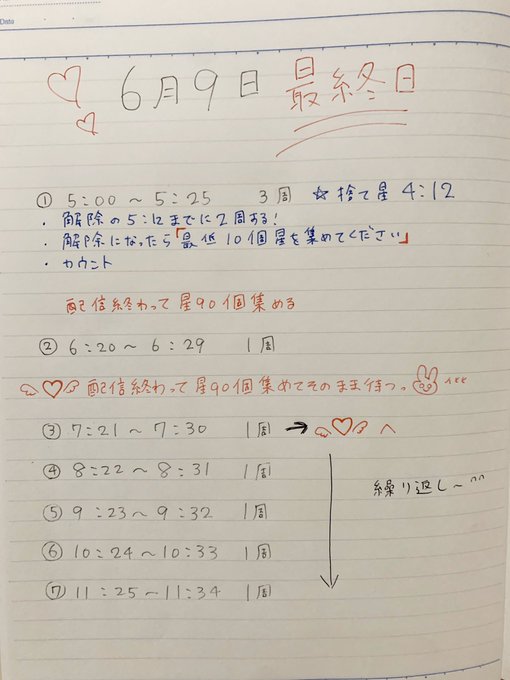 Date
6月9日 最終日
① 5:00～5:25 3周 ☆捨て星 4:12
・解除の5:12までに2周する!
・解除になったら「最低10個星を集めてください」
・カウント
配信終わって星90個集める
② 6:20～6:29 1周
♡配信終わって星90個集めてそのまま待つ。
③ 7:21～7:30 1周 → ♡へ
④ 8:22～8:31 1周
繰り返し～^^
⑤ 9:23～9:32 1周
⑥ 10:24～10:33 1周
⑦ 11:25～11:34 1周